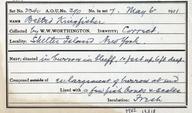 Set No. A.O.U. No. 390 No. in set 7. May 6 1911
NAME Belted Kingfisher
Collected by W. W. WORTHINGTON. Identity: Correct
Shelter Island New York.
Nest; situated in burrow in bluff,
Composed outside of enlargement of burrow at end
Lined with a few fish bones & scales
Incubation: Fresh